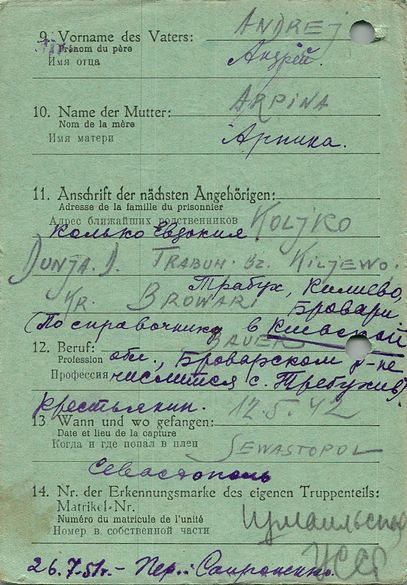 ANDREJ
9. Vorname des Vaters:
Prénom du père
Имя отца
Андрей.
ARPINA
10. Name der Mutter:
Nom de la mère
Имя матери
Арпина.
11. Anschrift der nächsten Angehörigen:
Adresse de la famille du prisonnier
Адрес ближайших родственников
KOLJKO
Колько Евдокия
DUNJA. D. TRABUH. BZ. KILJEWO.
Трабух, Килиево,
KR. BROWARI
Бровари
(По справочнику в Киевской
BAUER
12. Beruf:
Profession
Профессия
обл., Броварском р-не
числится с. Требухив).
крестьянин.
12.5.42
13. Wann und wo gefangen:
Date et lieu de la capture
Когда и где попал в плен
SEWASTOPOL
Севастополь
14. Nr. der Erkennungsmarke des eigenen Truppenteils:
Matrikel-Nr.
Numéro du matricule de l'unité
Номер в собственной части
УССР
26.7.51г.- Пер.: